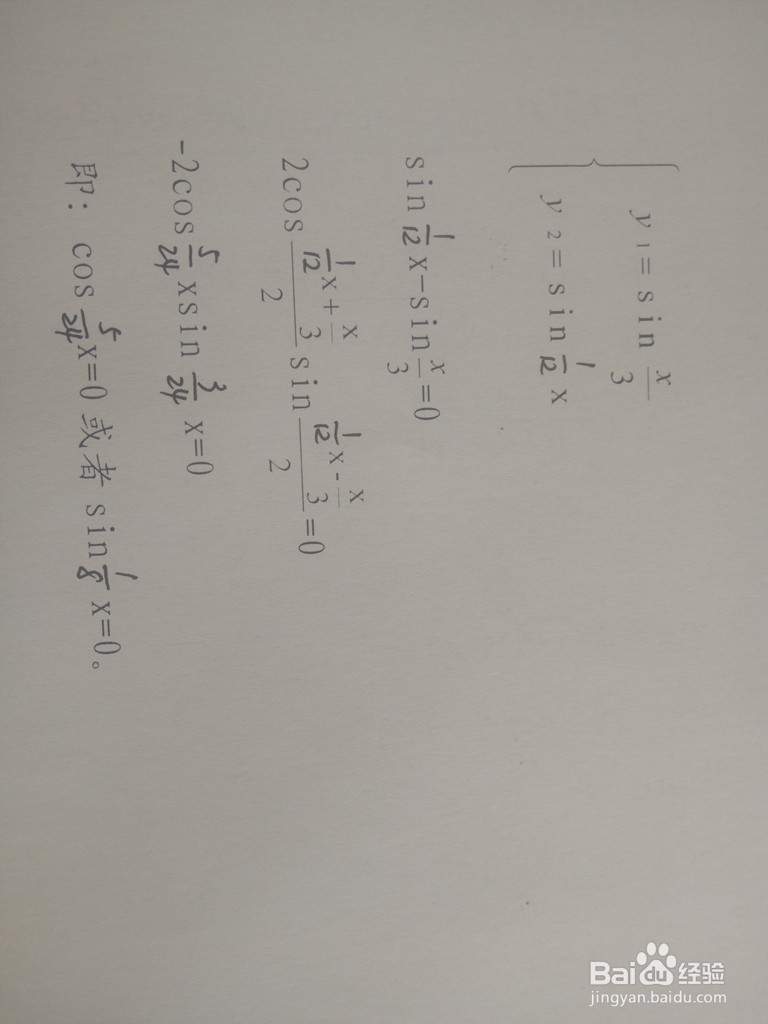 y₁=sin x/3
y₂=sin 1/12 x
sin 1/12 x-sin x/3=0
2cos (1/12 x+x/3)/2 sin (1/12 x-x/3)/2=0
-2cos 5/24 xsin 3/24 x=0
即：cos 5/24 x=0 或者 sin 1/8 x=0。
Baidu经验
jingyan.baidu.com